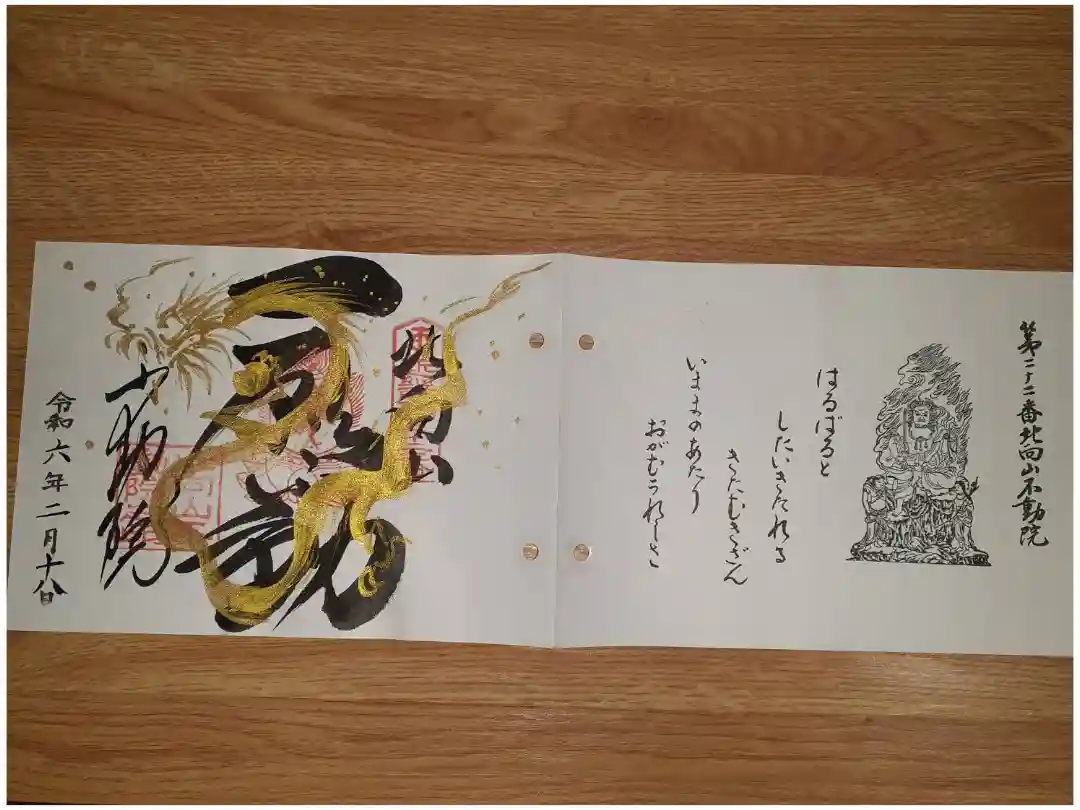 第二十二番北向山不動院
はるばると
したいきたれる
きたむきざん
いままのあたり
おがむうれしさ
北向山
不動院
令和六年二月十八日